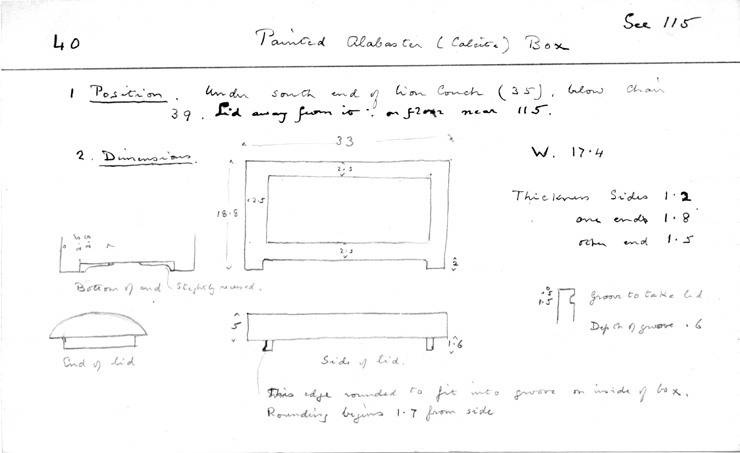 See 115
40
Painted Alabaster (Calcite) Box
1 Position. Under south end of Lion Couch (35), below chair
39. Lid away from it on floor near 115.
2. Dimensions.
33
W. 17.4
2.3
2.5
18.8
2.3
2
Thickness Sides 1.2
one end 1.8
other end 1.5
Bottom of end Slightly recessed.
.5
1.5
groove to take lid
Depth of groove .6
5
1.6
End of lid
Side of lid.
This edge rounded to fit into groove on inside of box.
Rounding begins 1.7 from side